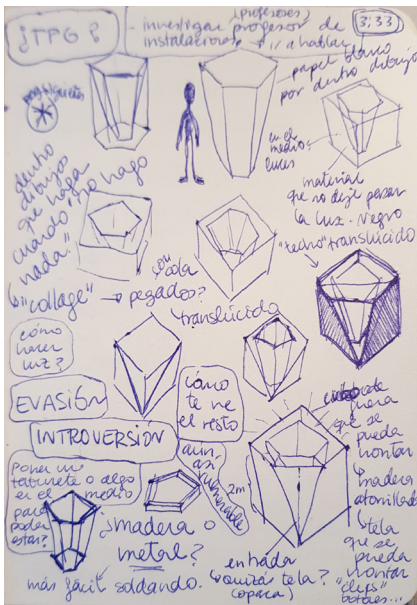 ¿TPG?
(profesores)
- investigar profesor de
instalaciones + ir a hablar
3:33
papel blanco
por dentro dibujos
en el
medio
luces
material
que no deje pasar
la luz. negro
"techo" translúcido
dentro
dibujos
que haga
cuando no hago
"nada"
↳ "collage" → pegados?
ou cola
translúcido
¿cómo
hacer
luz?
EVASIÓN
INTROVERSIÓN
cómo
te ve
el resto
aun
así
vulnerable
fuera
que se
pueda
montar
↳ madera
atornillada
↳ tela
que se
pueda
montar
"clips"
botones...
2m
Poner un
taburete o algo
en el medio
para
poder
estar?
¿madera o
metal?
más fácil soldando.
entrada
↳ quizás tela?
(opaca)